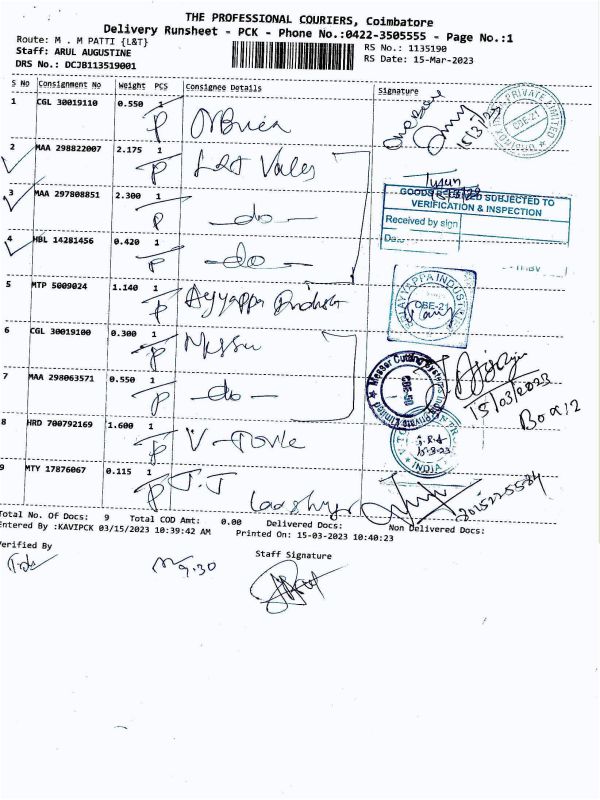 THE PROFESSIONAL COURIERS, Coimbatore
Delivery Runsheet - PCK - Phone No.:0422-3505555 - Page No.:1
Route: M . M PATTI {L&T}
RS No.: 1135190
Staff: ARUL AUGUSTINE
RS Date: 15-Mar-2023
DRS No.: DCJB113519001
S No Consignment No Weight PCS Consignee Details Signature
1 CGL 30019110 0.550 1
P O'Brien
15/3/23
PRIVATE LIMITED
CBE-21
2 MAA 298822007 2.175 1
P L&T Valves
3 MAA 297808851 2.300 1
P -do-
SUBJECTED TO
VERIFICATION & INSPECTION
Received by sign
4 HBL 14281456 0.420 1
P -do-
5 MTP 5009024 1.140 1
P Ayyappa
AYYAPPA INDUS
CBE-21
6 CGL 30019100 0.300 1
P Messer
Messer Cutting Systems India Private Limited
CBE-50
15/03/2023
7 MAA 298063571 0.550 1
P -do-
8 HRD 700792169 1.600 1
P V-
INDIA
9 MTY 17876067 0.115 1
P J.J
Total No. Of Docs: 9 Total COD Amt: 0.00 Delivered Docs: Non Delivered Docs:
Entered By :KAVIPCK 03/15/2023 10:39:42 AM Printed On: 15-03-2023 10:40:23
Verified By
Staff Signature
9.30